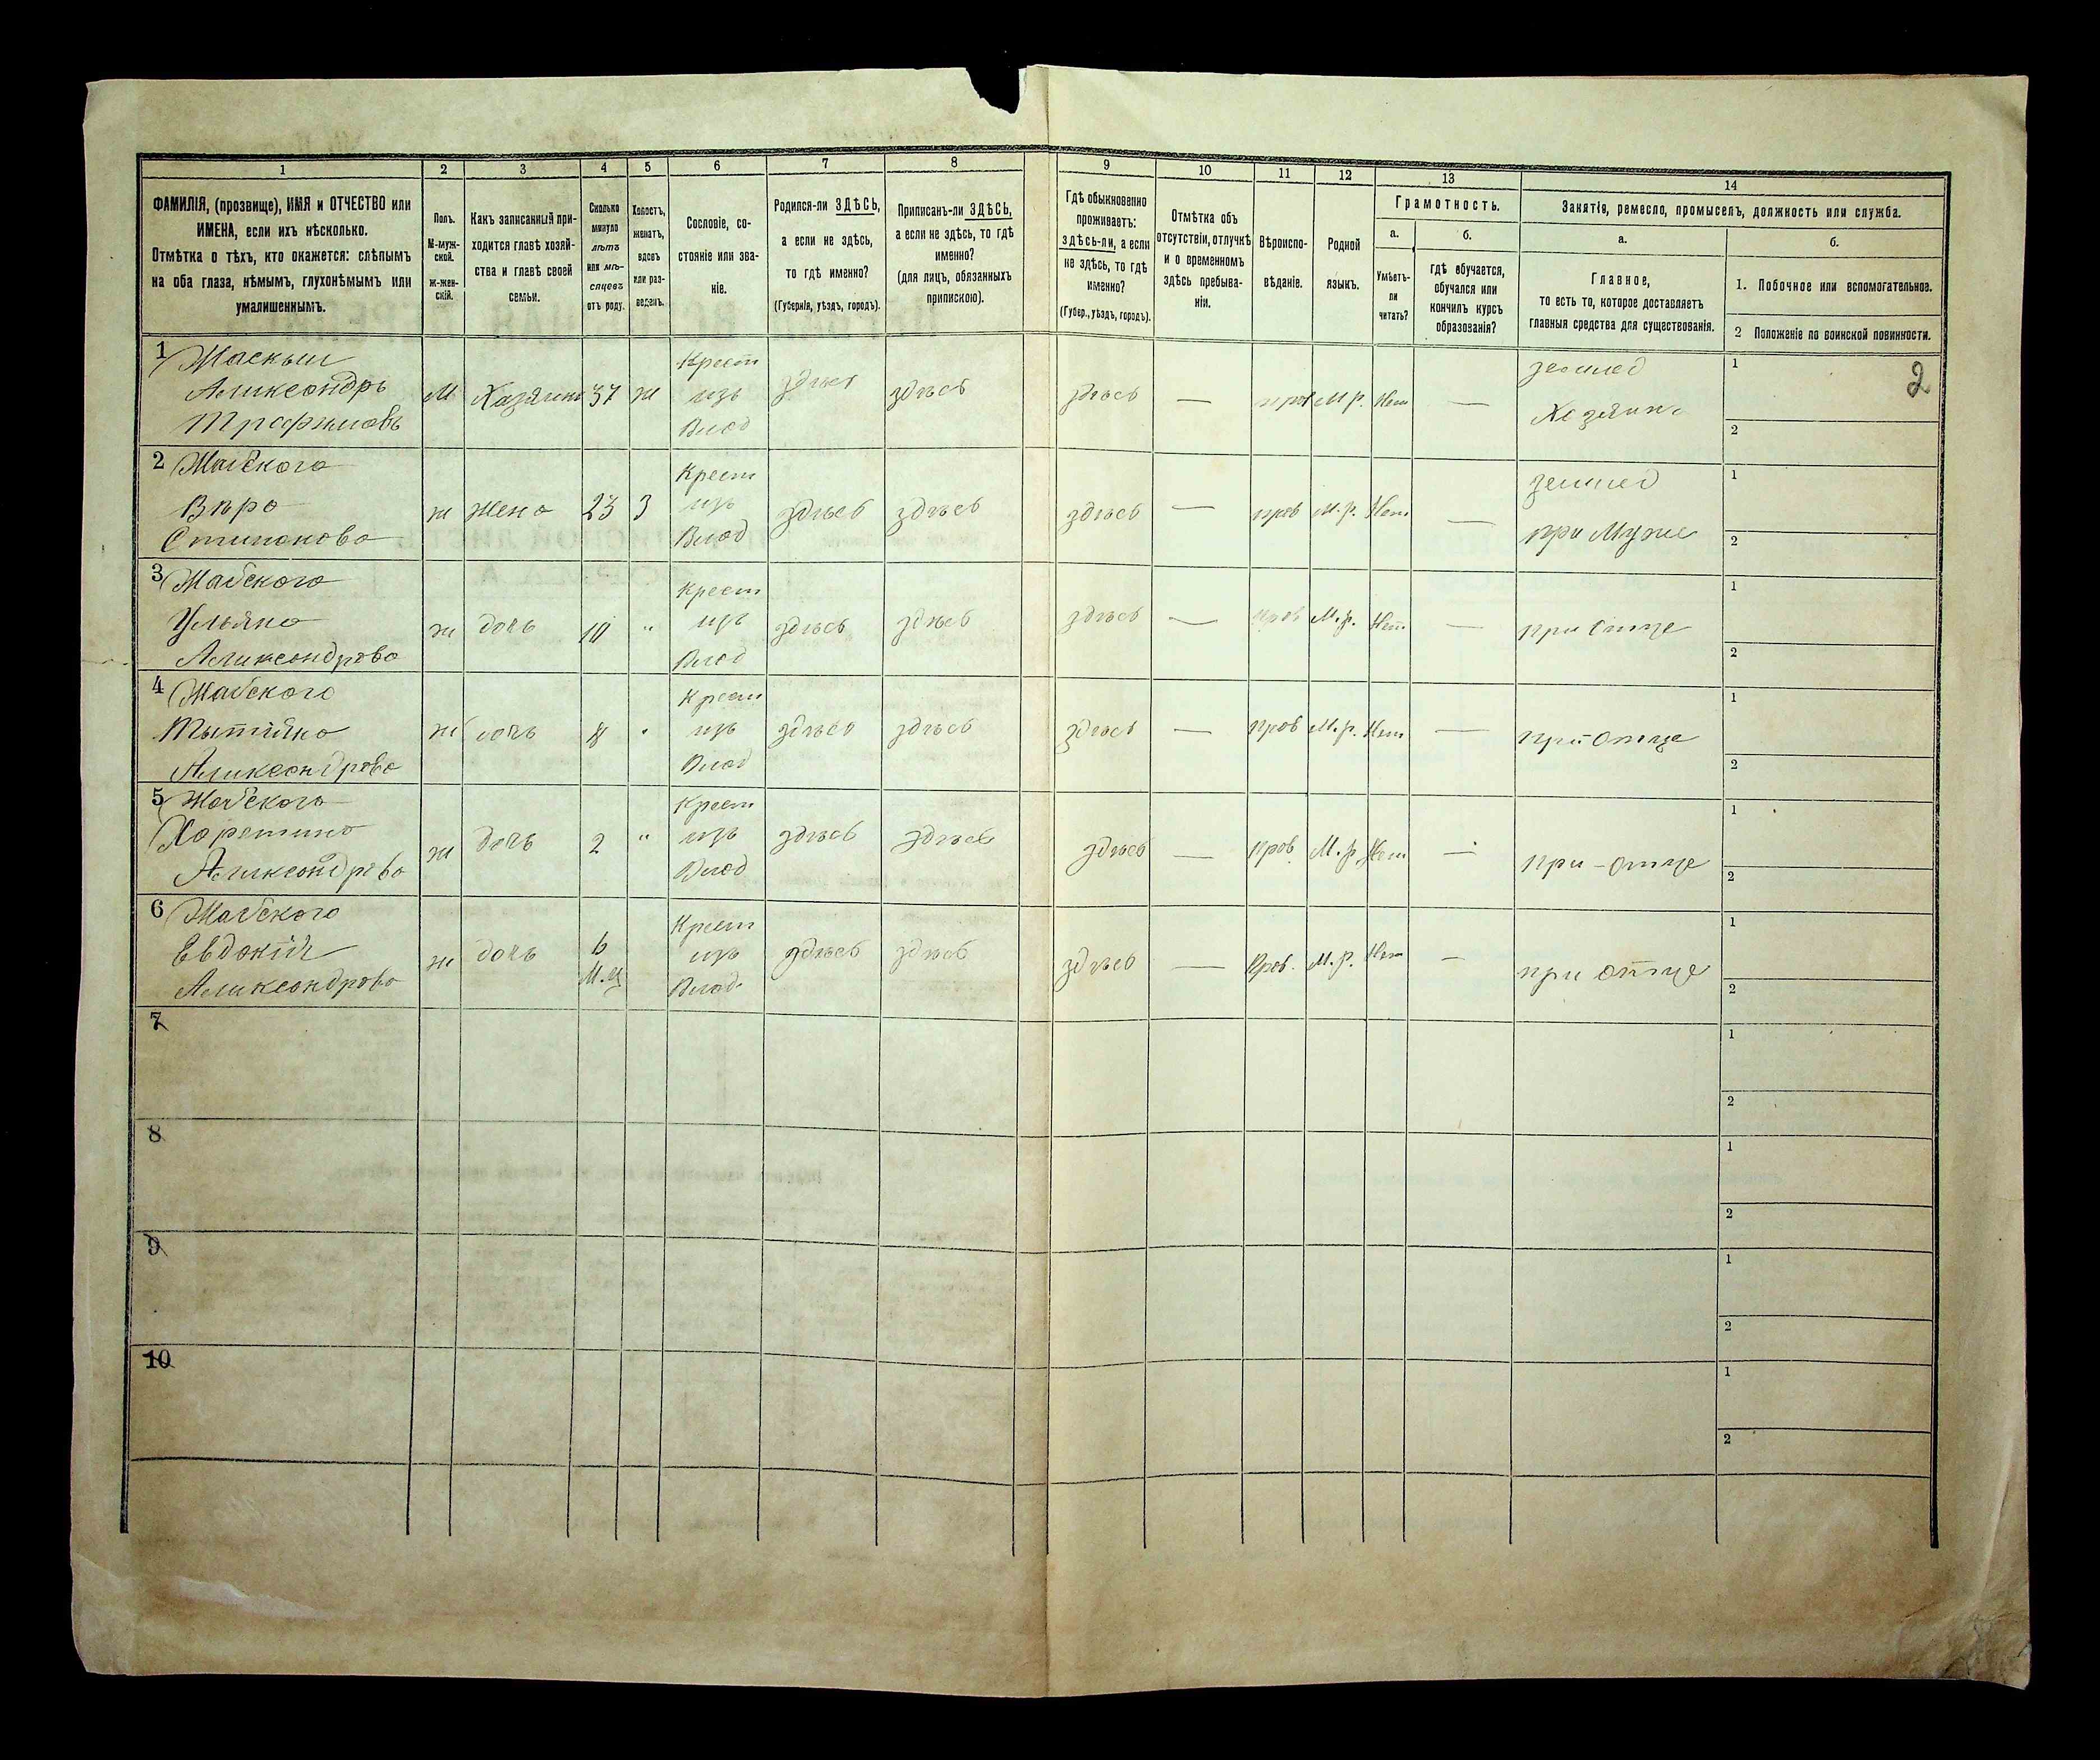 1 2 3 4 5 6 7 8 9 10 11 12 13 14
ФАМИЛІЯ, (прозвище), ИМЯ и ОТЧЕСТВО или
ИМЕНА, если ихъ нѣсколько.
Отмѣтка о тѣхъ, кто окажется: слѣпымъ
на оба глаза, нѣмымъ, глухонѣмымъ или
умалишеннымъ.
Полъ.
М-муж-
ской.
Ж-жен-
скій.
Какъ записанный при-
ходится главѣ хозяй-
ства и главѣ своей
семьи.
Сколько
минуло
лѣтъ
или мѣ-
сяцевъ
отъ роду.
Холостъ,
женатъ,
вдовъ
или раз-
веденъ.
Сословіе, со-
стояніе или зва-
ніе.
Родился-ли ЗДѢСЬ,
а если не здѣсь,
то гдѣ именно?
(Губернія, уѣздъ, городъ).
Приписанъ-ли ЗДѢСЬ,
а если не здѣсь, то гдѣ
именно?
(для лицъ, обязанныхъ
припискою).
Гдѣ обыкновенно
проживаетъ:
здѣсь-ли, а если
не здѣсь, то гдѣ
именно?
(Губер., уѣздъ, городъ).
Отмѣтка объ
отсутствіи, отлучкѣ
и о временномъ
здѣсь пребыва-
ніи.
Вѣроиспо-
вѣданіе.
Родной
языкъ.
Грамотность.
а.
Умѣетъ-
ли
читать?
б.
гдѣ обучается,
обучался или
кончилъ курсъ
образованія?
Занятія, ремесло, промыселъ, должность или служба.
а.
Главное,
то есть то, которое доставляетъ
главныя средства для существованія.
б.
1. Побочное или вспомогательное.
2 Положеніе по воинской повинности.
2
1
Аликсондръ
Трофимовъ
М Хазяинъ 37 ж
Крест
изъ
Влад
здѣсь здѣсь здѣсь — прав М р. Нет —
землед
Хозяинъ
1
2
2
Вѣра
Стипонова
ж жена 23 З
Крест
изъ
Влад
здѣсь здѣсь здѣсь — прав М. р. Нет —
землед
при Муже
1
2
3
Ульяна
Аликсондрова
ж дочь 10 "
Крест
изъ
Влад
здѣсь здѣсь здѣсь — прав М. р. Нет —
при Отце
1
2
4
Аликсондрова
ж дочь 8 "
Крест
изъ
Влад
здѣсь здѣсь здѣсь — Прав М. р. Нет —
при Отце
1
2
5
Аликсондрова
ж дочь 2 "
Крест
изъ
Влад
здѣсь здѣсь здѣсь — Прав М. р. Нет —
при-отце
1
2
6
Евдокій
Аликсондрова
ж дочь 6
М.ц
Крест
изъ
Влад.
здѣсь здѣсь здѣсь — Прав. М. р. Нет —
при отце
1
2
7
1
2
8
1
2
9
1
2
10
1
2